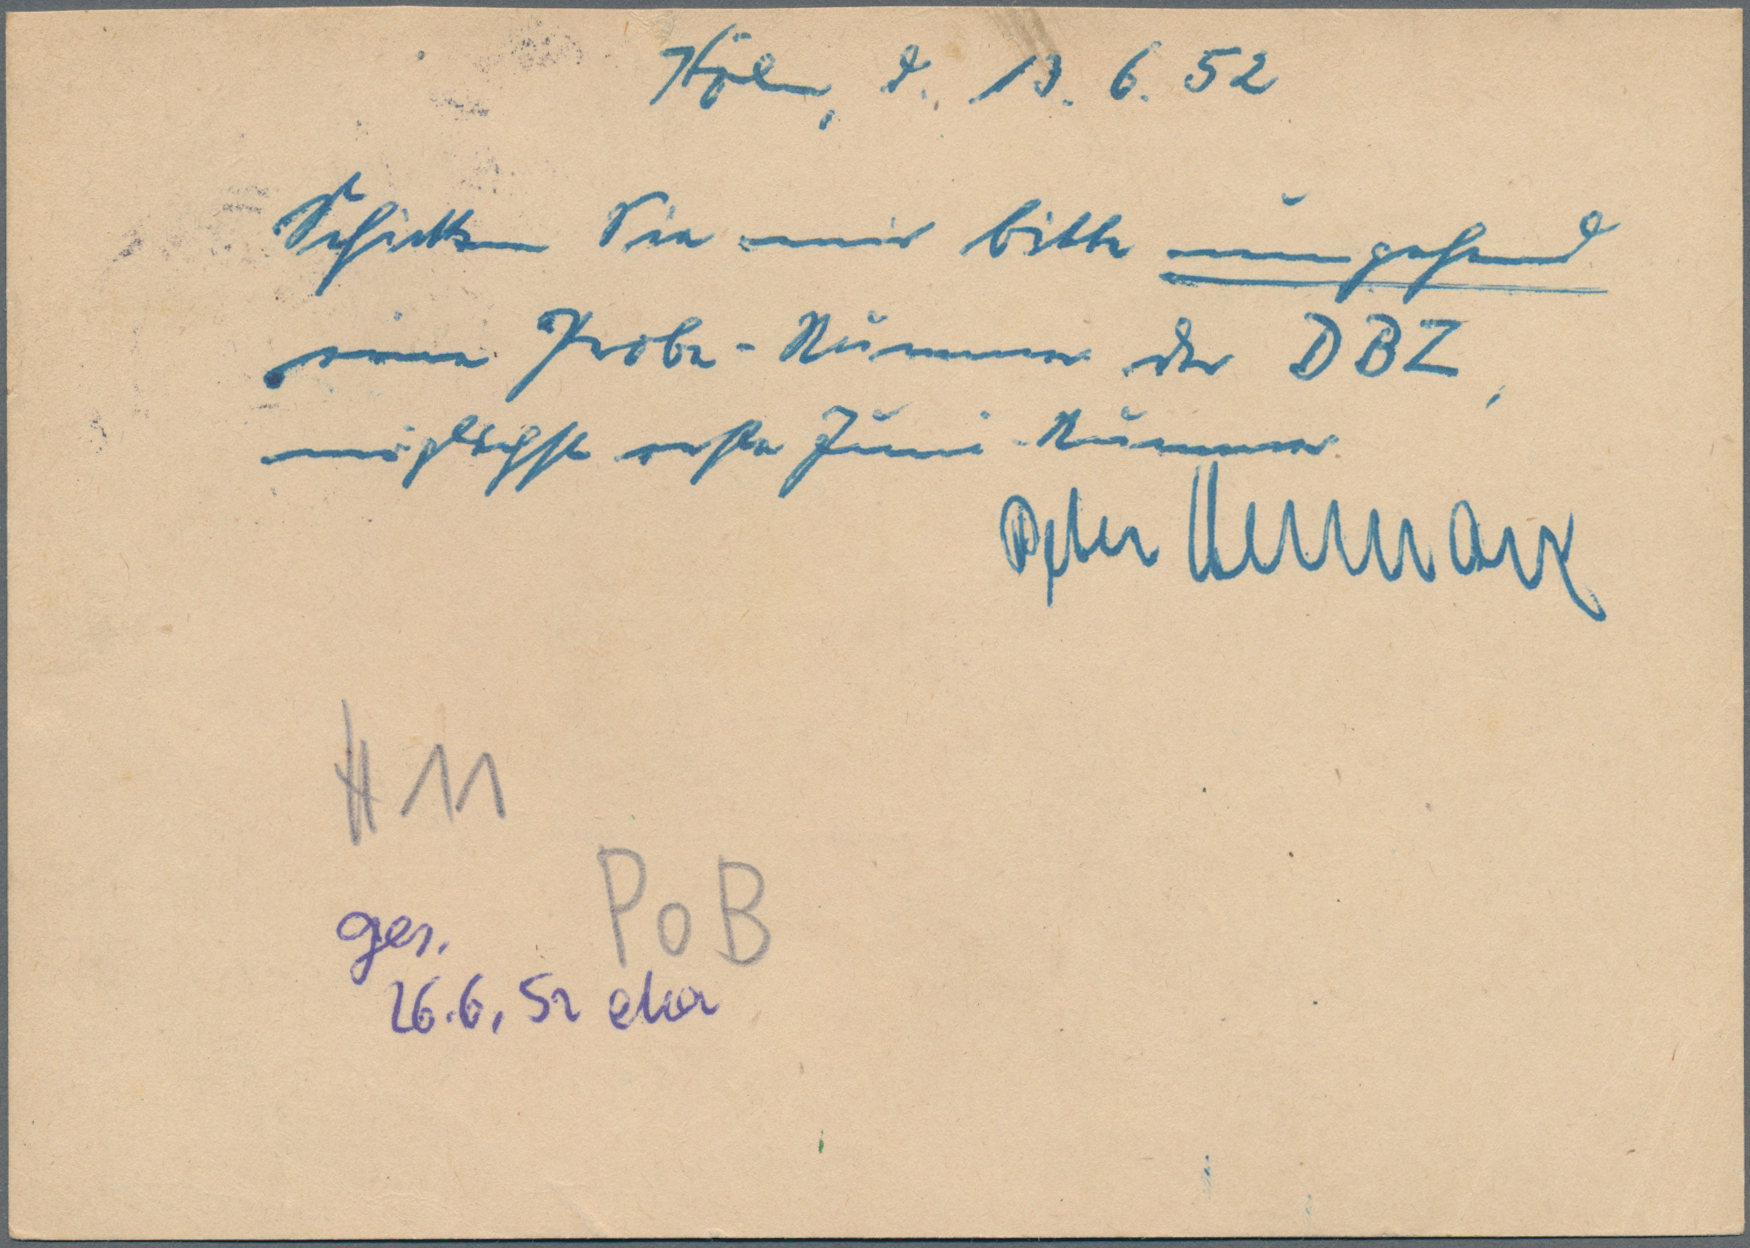 Köln, d. 13. 6. 52
Schicken Sie mir bitte umgehend
eine Probe-Nummer der DBZ,
möglichst erste Juni-Nummer.
Peter
H 11
PoB
ges.
26.6.52